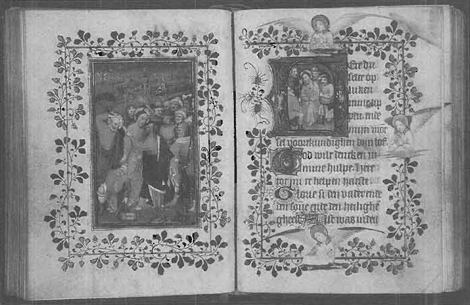 Ere du
selte op
luken
mine lip
pen ende
mijn mot
sel voortkundighen dijn lof
God wilt dencken in
mine hulpe Here
tot mi te helpen haeste
Glorie si den vader ende
den sone ende den heilighe
gheest Als was